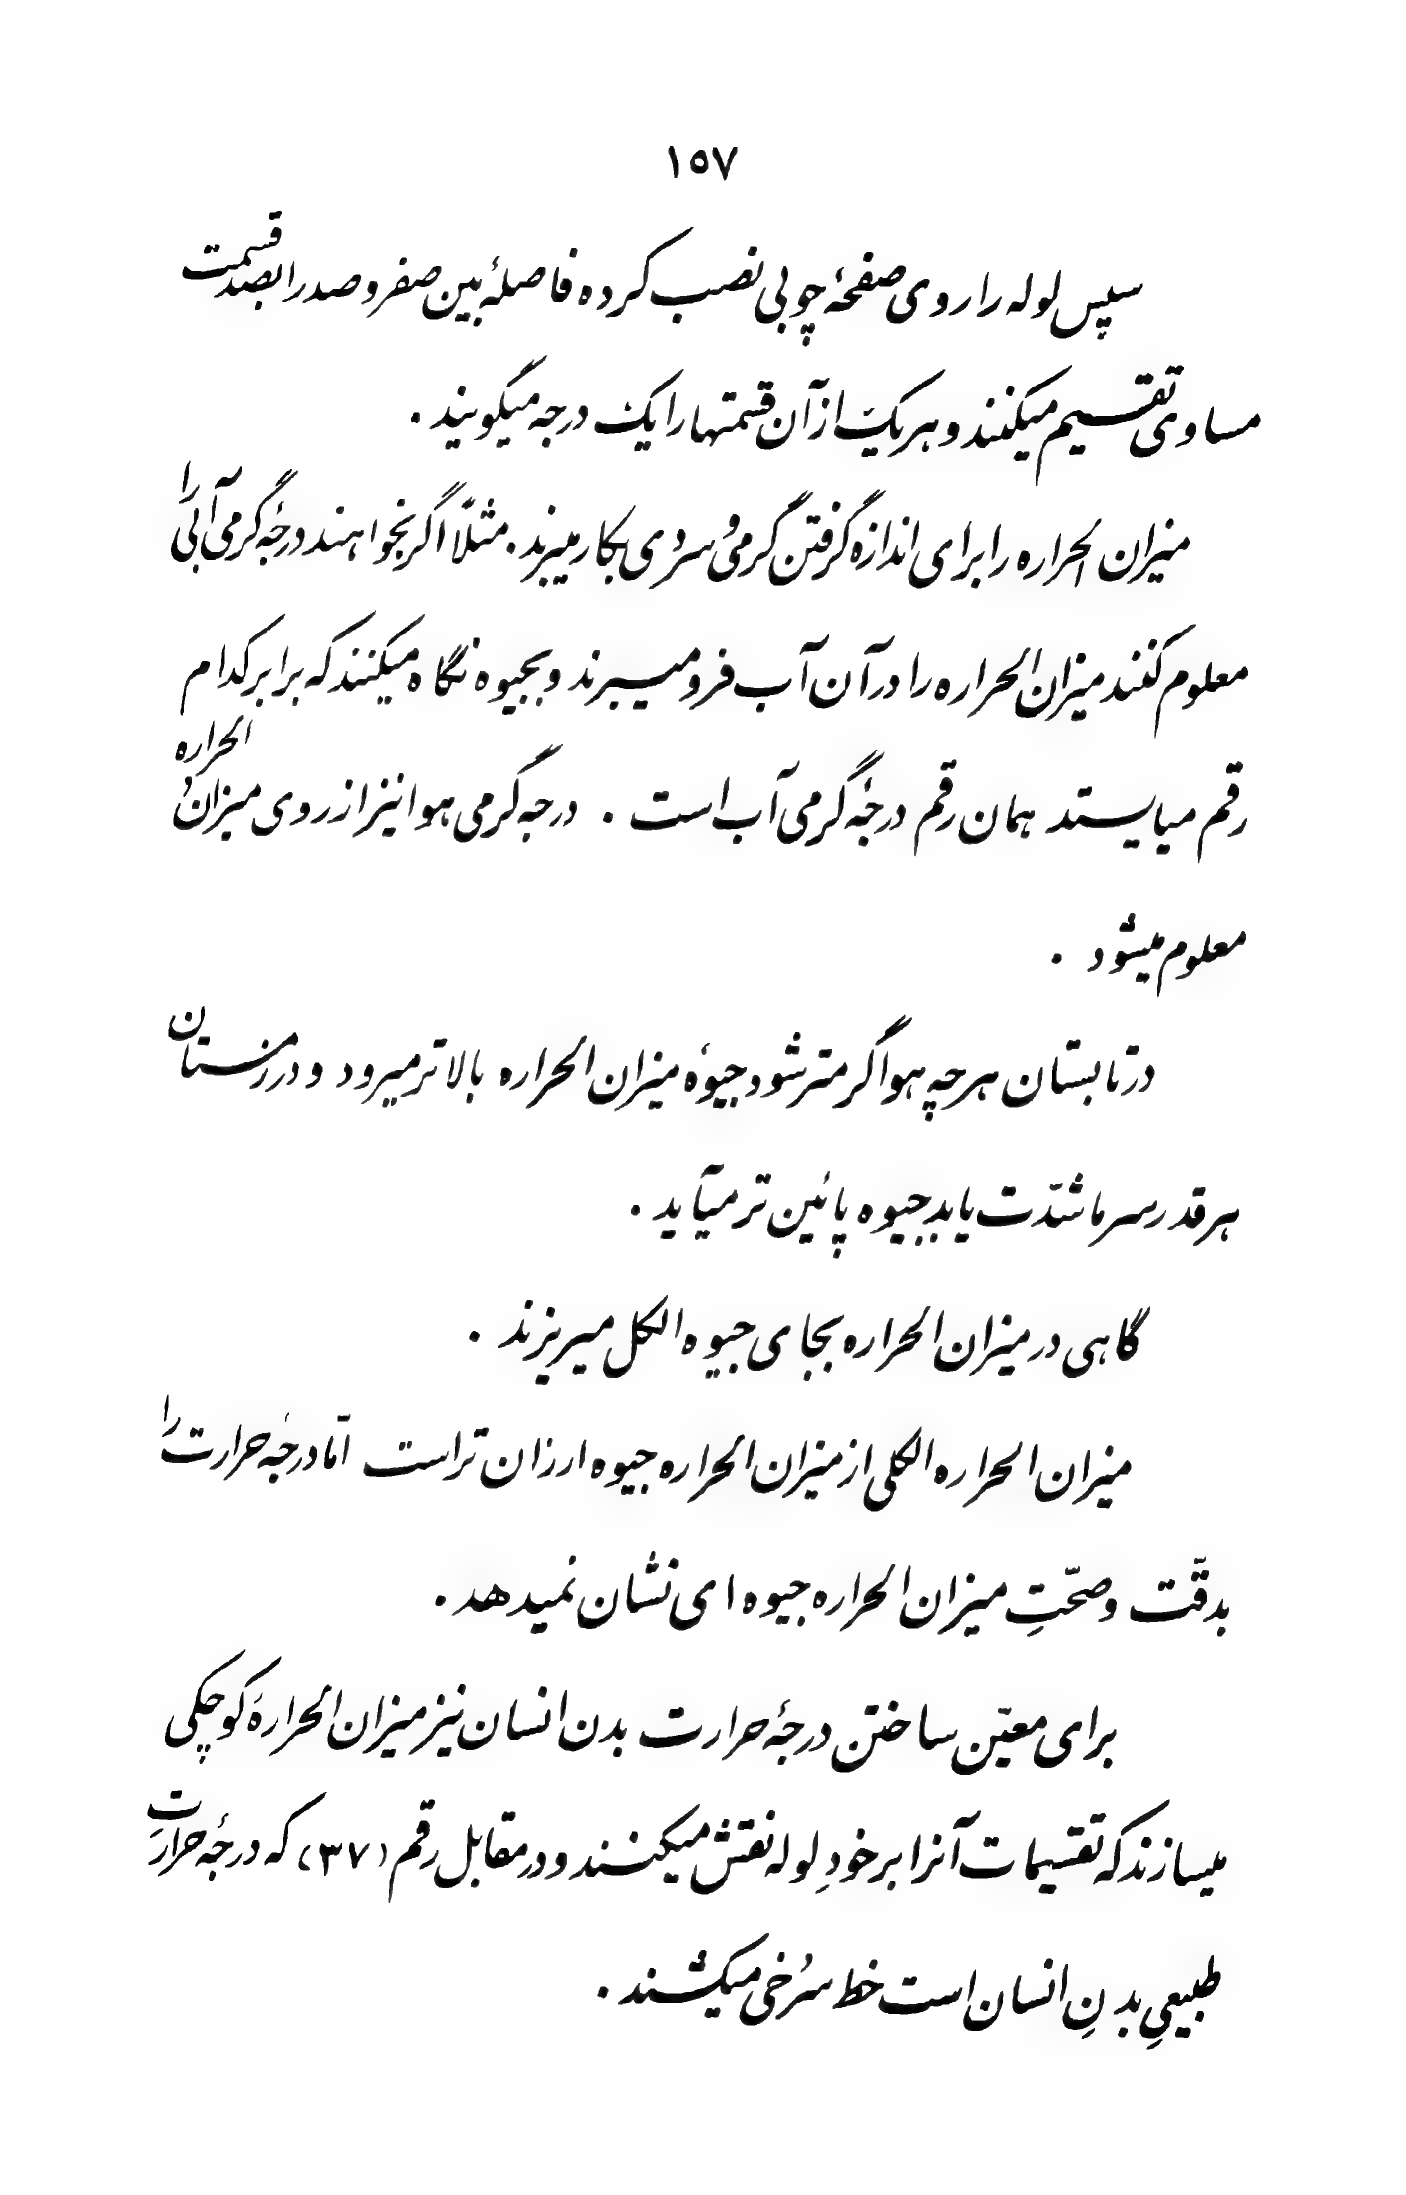 ۱۵۷
سپس لوله را روی صفحهٔ چوبی نصب کرده فاصلهٔ بین صفر و صد را بصد قسمت
مساوی تقسیم میکنند و هر یک از آن قسمتها را یک درجه میگویند .
میزان الحراره را برای اندازه گرفتن گرمی و سردی بکار میبرند . مثلاً اگر بخواهند درجهٔ گرمی آبی را
معلوم کنند میزان الحراره را در آن آب فرو میبرند و بجیوه نگاه میکنند که برابر کدام
رقم میایستد همان رقم درجهٔ گرمی آب است . درجه گرمی هوا نیز از روی میزان الحراره
معلوم میشود .
در تابستان هر چه هوا گرمتر شود جیوهٔ میزان الحراره بالاتر میرود و در زمستان
هر قدر سرما شدّت یابد جیوه پائین تر میآید .
گاهی در میزان الحراره بجای جیوه الکل میریزند .
میزان الحراره الکلی از میزان الحراره جیوه ارزان تر است امّا درجهٔ حرارت را
بدقّت و صحّتِ میزان الحراره جیوه ای نشان نمیدهد .
برای معیّن ساختن درجهٔ حرارت بدن انسان نیز میزان الحرارهٔ کوچکی
میسازند که تقسیمات آنرا بر خودِ لوله نقش میکنند و در مقابل رقم (۳۷) که درجهٔ حرارتِ
طبیعیِ بدنِ انسان است خط سُرخی میکشند .